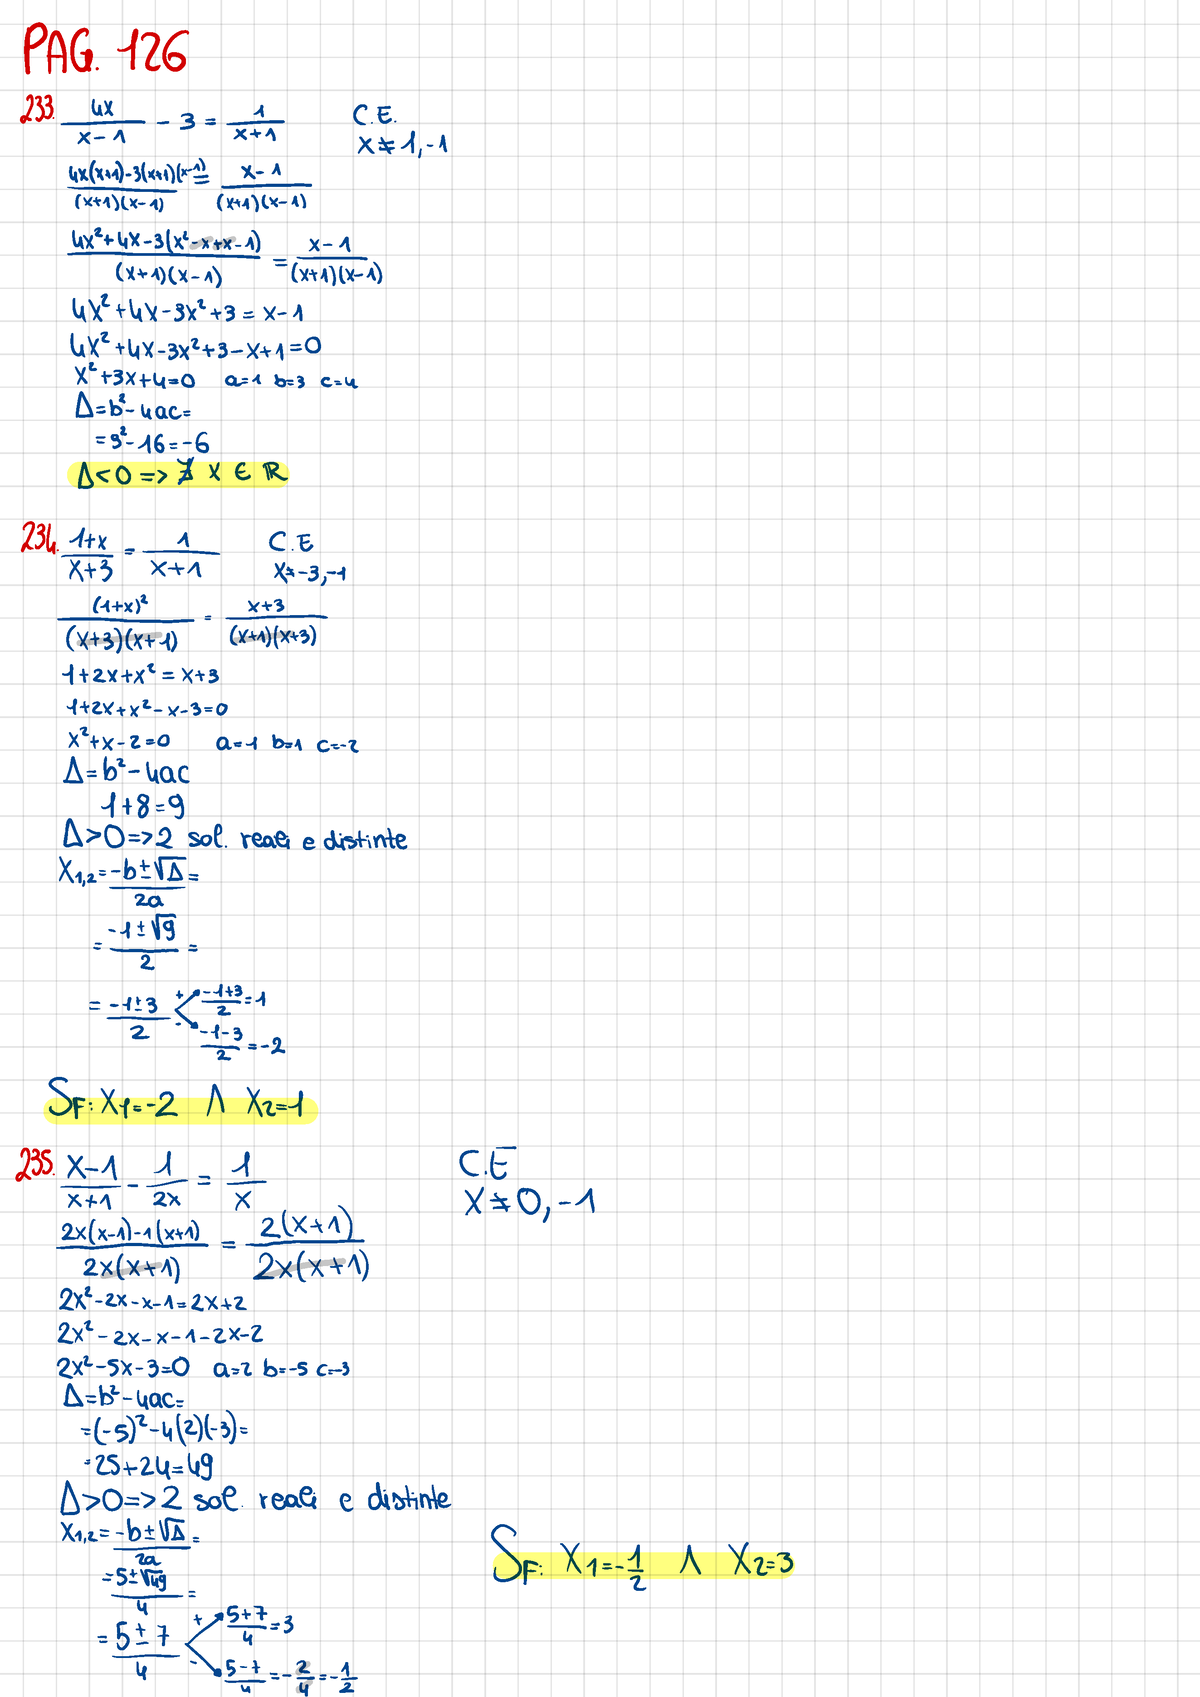 PAG. 126
233. 4x/(x-1) - 3 = 1/(x+1) C.E.
x ≠ 1, -1
(4x(x+1)-3(x+1)(x-1))/((x+1)(x-1)) = (x-1)/((x+1)(x-1))
(4x²+4x-3(x²-x+x-1))/((x+1)(x-1)) = (x-1)/((x+1)(x-1))
4x²+4x-3x²+3=x-1
4x²+4x-3x²+3-x+1=0
x²+3x+4=0 a=1 b=3 c=4
Δ=b²-4ac=
=3²-16=-6
Δ<0 => ∄ x ∈ ℝ
234. (1+x)/(x+3) = 1/(x+1) C.E
x≠-3,-1
(1+x)²/((x+3)(x+1)) = (x+3)/((x+1)(x+3))
1+2x+x²=x+3
1+2x+x²-x-3=0
x²+x-2=0 a=1 b=1 c=-2
Δ=b²-4ac
1+8=9
Δ>0=>2 sol. reali e distinte
x1,2=(-b±√Δ)/2a=
=(-1±√9)/2=
=(-1±3)/2 + (-1+3)/2=1
- (-1-3)/2=-2
SF: x1=-2 ∧ x2=1
235. (x-1)/(x+1) - 1/2x = 1/x C.E
x≠0,-1
(2x(x-1)-1(x+1))/(2x(x+1)) = 2(x+1)/(2x(x+1))
2x²-2x-x-1=2x+2
2x²-2x-x-1-2x-2
2x²-5x-3=0 a=2 b=-5 c=-3
Δ=b²-4ac=
=(-5)²-4(2)(-3)=
=25+24=49
Δ>0=>2 sol. reali e distinte
x1,2=(-b±√Δ)/2a=
=(5±√49)/4=
=(5±7)/4 + (5+7)/4=3
- (5-7)/4=-2/4=-1/2
SF: x1=-1/2 ∧ x2=3